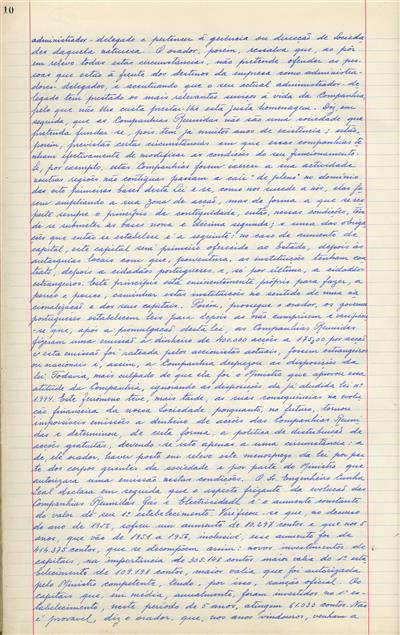 10
administrador-delegado e pertencer à gerencia ou direcção de Socieda
des daquela natureza. O orador, porém, ressalva que, ao pôr
em relevo todas estas circunstâncias, não pretende ofender as pes-
soas que estão à frente dos destinos da empresa como administra-
dores-delegados, e acentuando que o seu actual administrador-de-
legado tem prestado os mais relevantes serviços à vida da Companhia
pelo que não lhe custa prestar-lhe esta justa homenagem. Diz, em
seguida, que as Companhias Reunidas não são uma sociedade que
pretenda fundar-se, pois tem já muitos anos de existencia; estão,
porém, previstas certas circunstâncias em que essas companhias te
nham efectivamente de modificar as condições do seu funcionamento.
Se, por exemplo, estas Companhias forem exercer a sua actividade
noutras regiões não contiguas passam a cair "de pleno" no dominio
das oito primeiras bases desta Lei e se, como nos sucede a nós, elas fo
rem ampliando a sua zona de acção, mas de forma a que se res
peite sempre o principio da contiguidade, então, nessas condições, têm
de se submeter às bases nona e décima segunda; e uma das obriga
ções que então se estabelece é a seguinte: no caso de aumento de
capital, este capital será primeiro oferecido ao Estado, depois às
autarquias locais com que, porventura, as instituições tenham con
tracto, depois a cidadãos portugueses e, só por ultimo, a cidadãos
estrangeiros. Este principio está eminentemente próprio para fazer, a
pouco e pouco, caminhar estas instituições no sentido de uma na
cionalização dos seus capitais. Porém, prossegue o orador, os governos
portugueses estabelecem leis para depois as não cumprirem e verificou
-se que, após a promulgação desta lei, as Companhias Reunidas
fizeram uma emissão a dinheiro de 400.000 acções a 175,00 por acção
e esta emissão foi rateada pelos accionistas actuais, fossem estrangeiros
ou nacionais e, assim, a Companhia desprezou as disposições da
lei. Todavia, mais culpado do que ela foi o Ministro que aprovou essa
atitude da Companhia, ignorando as disposições da já aludida lei nº
1.994. Este fenómeno teve, mais tarde, as suas consequências na evolu
ção financeira da nossa Sociedade porquanto, no futuro, tornou
impossiveis emissões a dinheiro de acções das Companhias Reuni
das e determinou, de certa forma, a politica de distribuição de
acções gratuitas, devendo-se isto apenas a uma circunstância: a
de, ele orador, haver posto em relevo este menosprezo da lei por par
te dos corpos gerentes da sociedade e por parte do Ministro que
autorizara uma emissão nestas condições. O Sr. Engenheiro Cunha
Leal declara em seguida que o aspecto frizante da evolução das
Companhias Reunidas Gás e Electricidade é o aumento constante
do valor do seu 1º estabelecimento. Verificou-se que, no decurso
do ano de 1956, sofreu um aumento de 80.297 contos e que nos 5
anos, que vão de 1951 a 1956, inclusivé, esse aumento foi de
414.375 contos, que se decompõem assim: novos investimentos de
capitais, na importancia de 305.178 contos, mais valia de 1º esta
belecimento de 109.198 contos, maior valia que foi autorizada
pelo Ministro competente, tendo, por isso, sanção oficial. Os
capitais que, em média, anualmente, foram investidos no 1º es-
tabelecimento, neste periodo de 5 anos, atingem 61.033 contos. Não
é provavel, diz o orador, que, nos anos vindouros, venham a